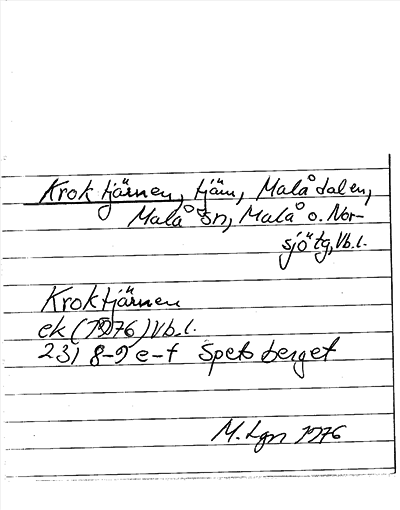 Kroktjärnen, tjärn, Malådalen,
Malå sn, Malå o. Nor-
sjö tg, Vb.l.
Kroktjärnen
ek (1976) Vb.l.
23I 8-9 e-f Spetsberget
M. Lgn 1976